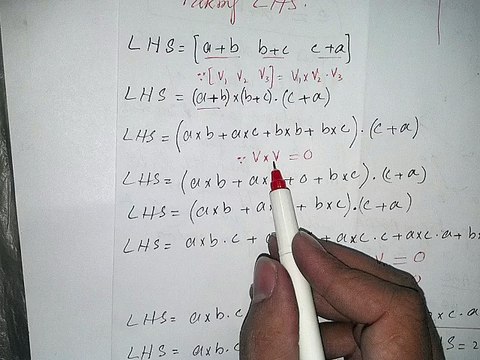 Taking LHS.
LHS = [a+b b+c c+a]
∵ [V₁ V₂ V₃] = V₁×V₂·V₃
LHS = (a+b)×(b+c)·(c+a)
LHS = (a×b + a×c + b×b + b×c)·(c+a)
∵ V×V = 0
LHS = (a×b + a× + 0 + b×c)·(c+a)
LHS = (a×b + a× + b×c)·(c+a)
LHS = a×b·c + a×c·c + a×c·a + b×
= 0
LHS = a×b·c b×c·a
LHS = a×b LHS = 2